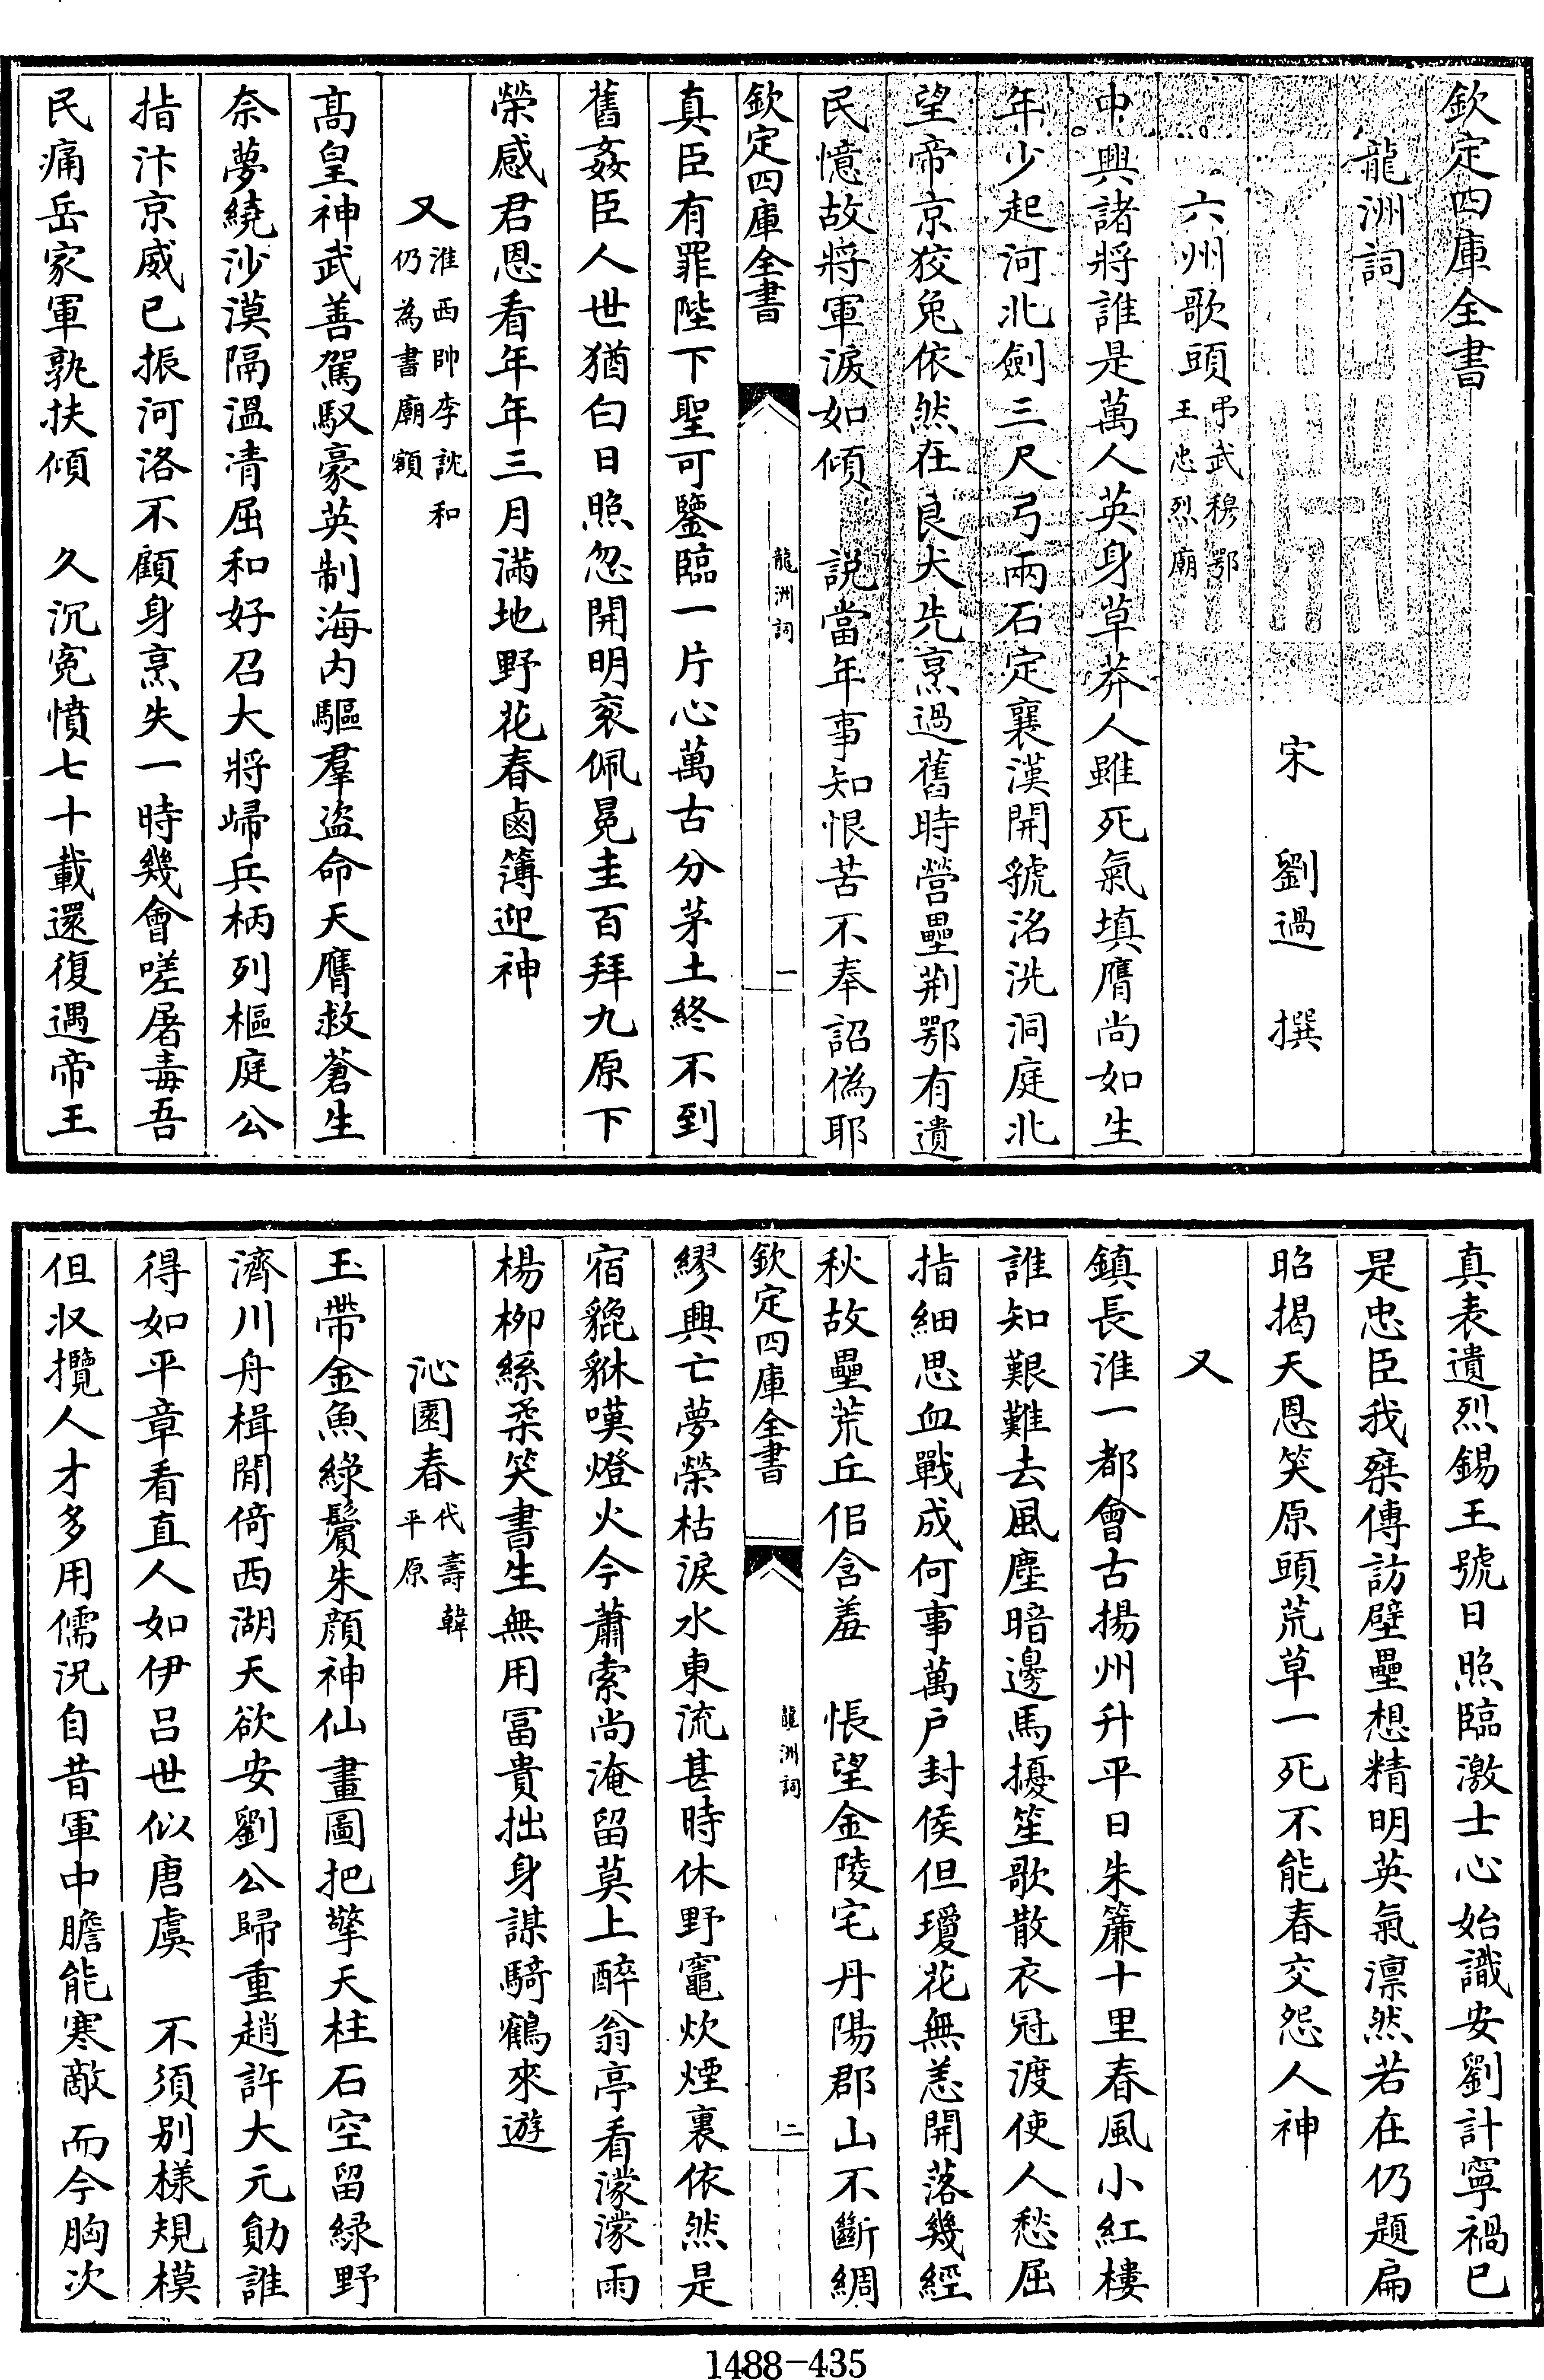 欽定四庫全書
龍洲詞
宋 劉過 撰
六州歌頭弔武穆鄂王忠烈廟
中興諸將誰是萬人英身草莽人雖死氣填膺尚如生
年少起河北劍三尺弓兩石定襄漢開虢洛洗洞庭北
望帝京狡兔依然在良犬先烹過舊時營壘荆鄂有遺
民憶故將軍淚如傾 説當年事知恨苦不奉詔偽耶
欽定四庫全書
龍洲詞
一
真臣有罪陛下聖可鑒臨一片心萬古分茅土終不到
舊姦臣人世猶白日照忽開明衮佩冕圭百拜九原下
榮感君恩看年年三月滿地野花春鹵簿迎神
又淮西帥李訦和仍為書廟額
髙皇神武善駕馭豪英制海内驅羣盜命天膺救蒼生
奈夢繞沙漠隔溫凊屈和好召大將歸兵柄列樞庭公
指汴京威已振河洛不顧身烹失一時幾會嗟屠毒吾
民痛岳家軍孰扶傾 久沉寃憤七十載還復遇帝王
真表遺烈錫王號日照臨激士心始識安劉計寧禍已
是忠臣我寀傳訪壁壘想精明英氣凛然若在仍題扁
昭揭天恩笑原頭荒草一死不能春交怨人神
又
鎮長淮一都會古揚州升平日朱簾十里春風小紅樓
誰知艱難去風塵暗邊馬擾笙歌散衣冠渡使人愁屈
指細思血戰成何事萬户封侯但瓊花無恙開落幾經
秋故壘荒丘佀含羞 悵望金陵宅丹陽郡山不斷綢
欽定四庫全書
龍洲詞
二
繆興亡夢榮枯淚水東流甚時休野竈炊煙裏依然是
宿貔貅嘆燈火今蕭索尚淹留莫上醉翁亭看濛濛雨
楊柳絲柔笑書生無用冨貴拙身謀騎鶴來遊
沁園春代壽韓平原
玉帶金魚綠鬢朱顔神仙畫圖把擎天柱石空留綠野
濟川舟楫閒倚西湖天欲安劉公歸重趙許大元勛誰
得如平章看直人如伊吕世似唐虞 不須别様規模
但収攬人才多用儒況自昔軍中膽能寒敵而今胸次
1488-435